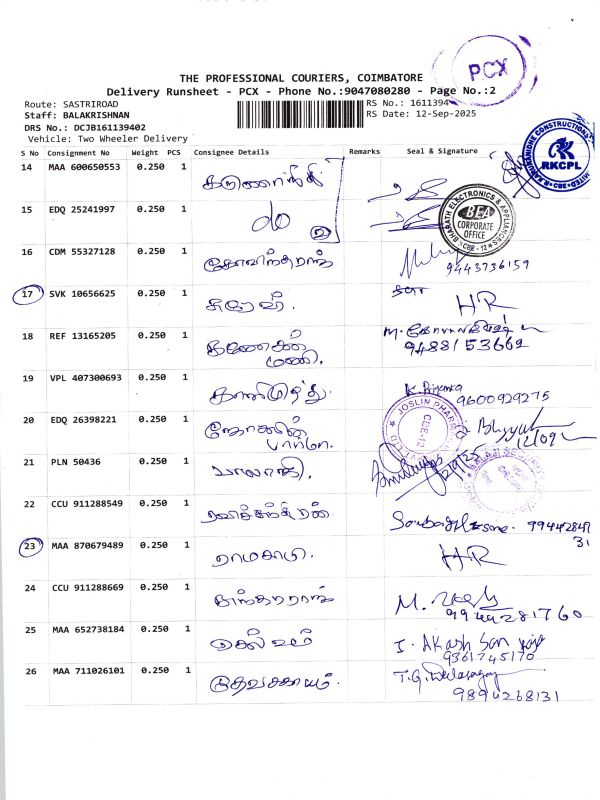 PCX
THE PROFESSIONAL COURIERS, COIMBATORE
Delivery Runsheet - PCX - Phone No.:9047080280 - Page No.:2
Route: SASTRIROAD
RS No.: 1611394
Staff: BALAKRISHNAN
RS Date: 12-Sep-2025
DRS No.: DCJB161139402
Vehicle: Two Wheeler Delivery
S No Consignment No Weight PCS Consignee Details Remarks Seal & Signature
RKCPL
14 MAA 600650553 0.250 1
15 EDQ 25241997 0.250 1 do 2
BHARATH ELECTRONICS & APPLIANCES
BEA
CORPORATE
OFFICE
CBE - 12
16 CDM 55327128 0.250 1 கோவிந்தராஜ்
9443736159
17 SVK 10656625 0.250 1 சுரேஷ். HR
18 REF 13165205 0.250 1 கணேசன்
மணி.
9488153662
19 VPL 407300693 0.250 1 காளிமுத்து. K. Priyanka
9600929275
20 EDQ 26398221 0.250 1 ஜோஸ்லின்
பார்மா.
JOSLIN PHARMA
CBE-12
12/09
21 PLN 50436 0.250 1 பாலாஜி
22 CCU 911288549 0.250 1 ரவிச்சந்திரன்
9944284731
23 MAA 870679489 0.250 1 ராமசாமி. HR
24 CCU 911288669 0.250 1
9944281760
25 MAA 652738184 0.250 1 செல்வம் I. Akash
9361745170
26 MAA 711026101 0.250 1 தேவசகாயம்.
9894268131